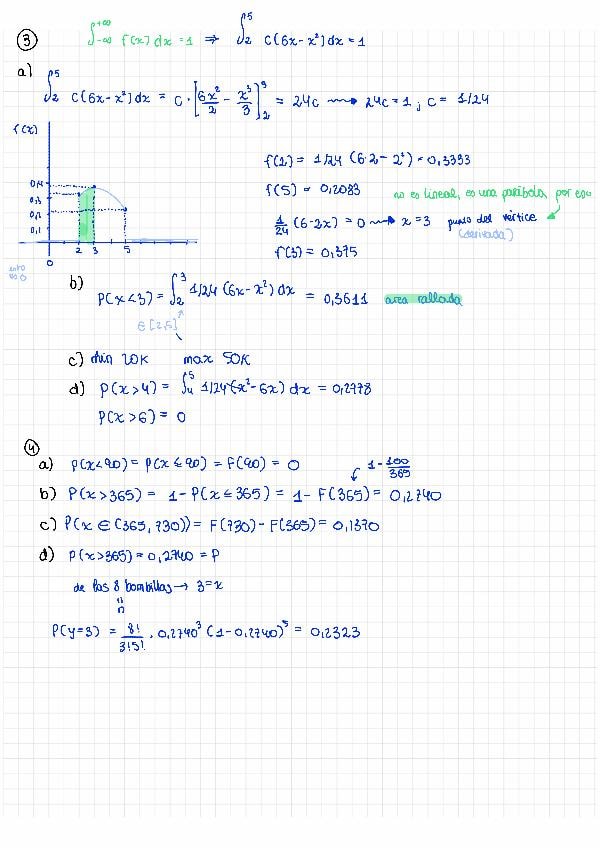 3 ∫₋∞^+∞ f(x) dx = 1 ⇒ ∫₂⁵ c(6x-x²) dx = 1
a) ∫₂⁵ c(6x-x²) dx = c·[6x²/2 - x³/3]₂⁵ = 24c → 24c = 1 ; c = 1/24
f(x)
f(2) = 1/24 (6·2-2²) = 0,3333
0,4
0,3
0,2
0,1
f(5) = 0,2083 no es lineal, es una parábola, por eso
1/24 (6-2x) = 0 → x = 3 punto del vértice
(derivada)
2 3 5
0
f(3) = 0,375
b) P(x<3) = ∫₂³ 1/24 (6x-x²) dx = 0,3611 area rallada
∈ [2,5]
c) min 20K max 50K
d) P(x>4) = ∫₄⁵ 1/24 (x²-6x) dx = 0,2778
P(x>6) = 0
4
a) P(x<90) = P(x≤90) = F(90) = 0
1 - 100/365
b) P(x>365) = 1-P(x≤365) = 1-F(365) = 0,2740
c) P(x∈(365,730)) = F(730)-F(365) = 0,1370
d) P(x>365) = 0,2740 = P
de las 8 bombillas → 3 = x
"
n
P(y=3) = 8!/3!5! · 0,2740³ (1-0,2740)⁵ = 0,2323